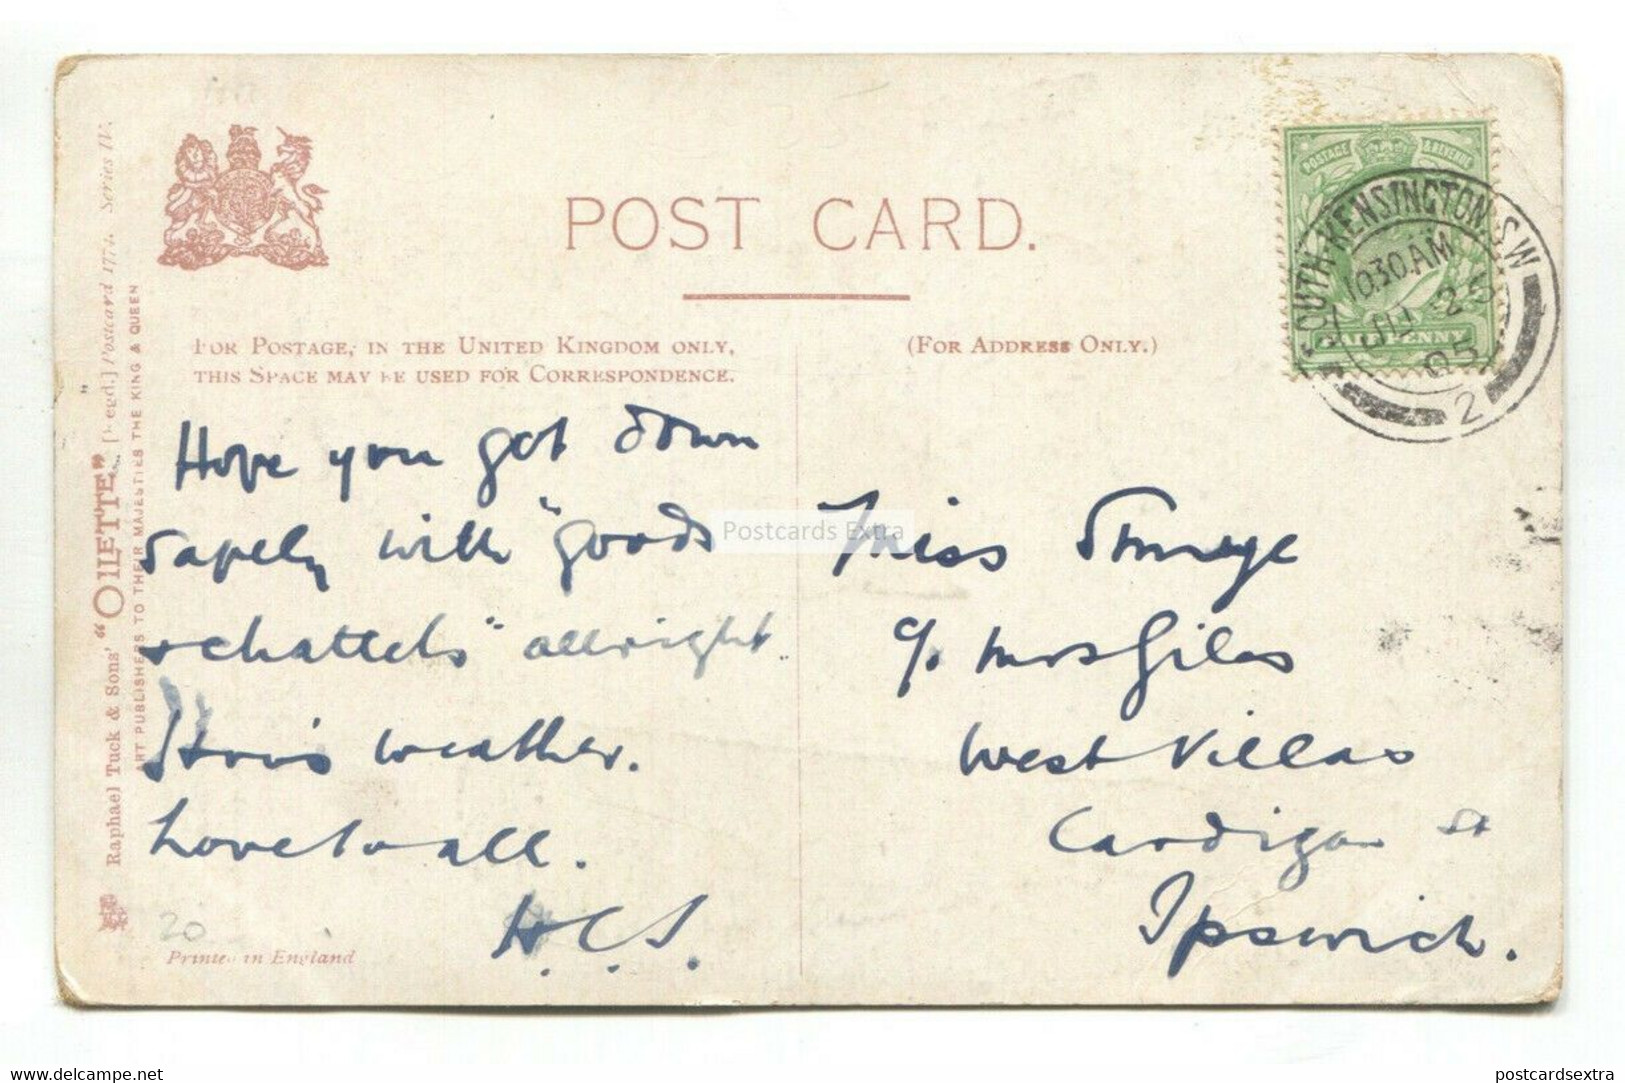 POST CARD.
FOR POSTAGE, IN THE UNITED KINGDOM ONLY,
THIS SPACE MAY BE USED FOR CORRESPONDENCE.
(FOR ADDRESS ONLY.)
POSTAGE & REVENUE
HALF PENNY
SOUTH KENSINGTON.S.W
10.30.AM
05
2
Hope you got down
safely with "goods
& chattels" allright.
weather.
Love to all.
H.C.S.
Miss
c/o Mrs Giles
West Villas
Cardigan St
Ipswich.
Raphael Tuck & Sons' "OILETTE" [Regd.] Postcard 1774. Series IV.
ART PUBLISHERS TO THEIR MAJESTIES THE KING & QUEEN
20
Printed in England
Postcards Extra
www.delcampe.net
postcardsextra